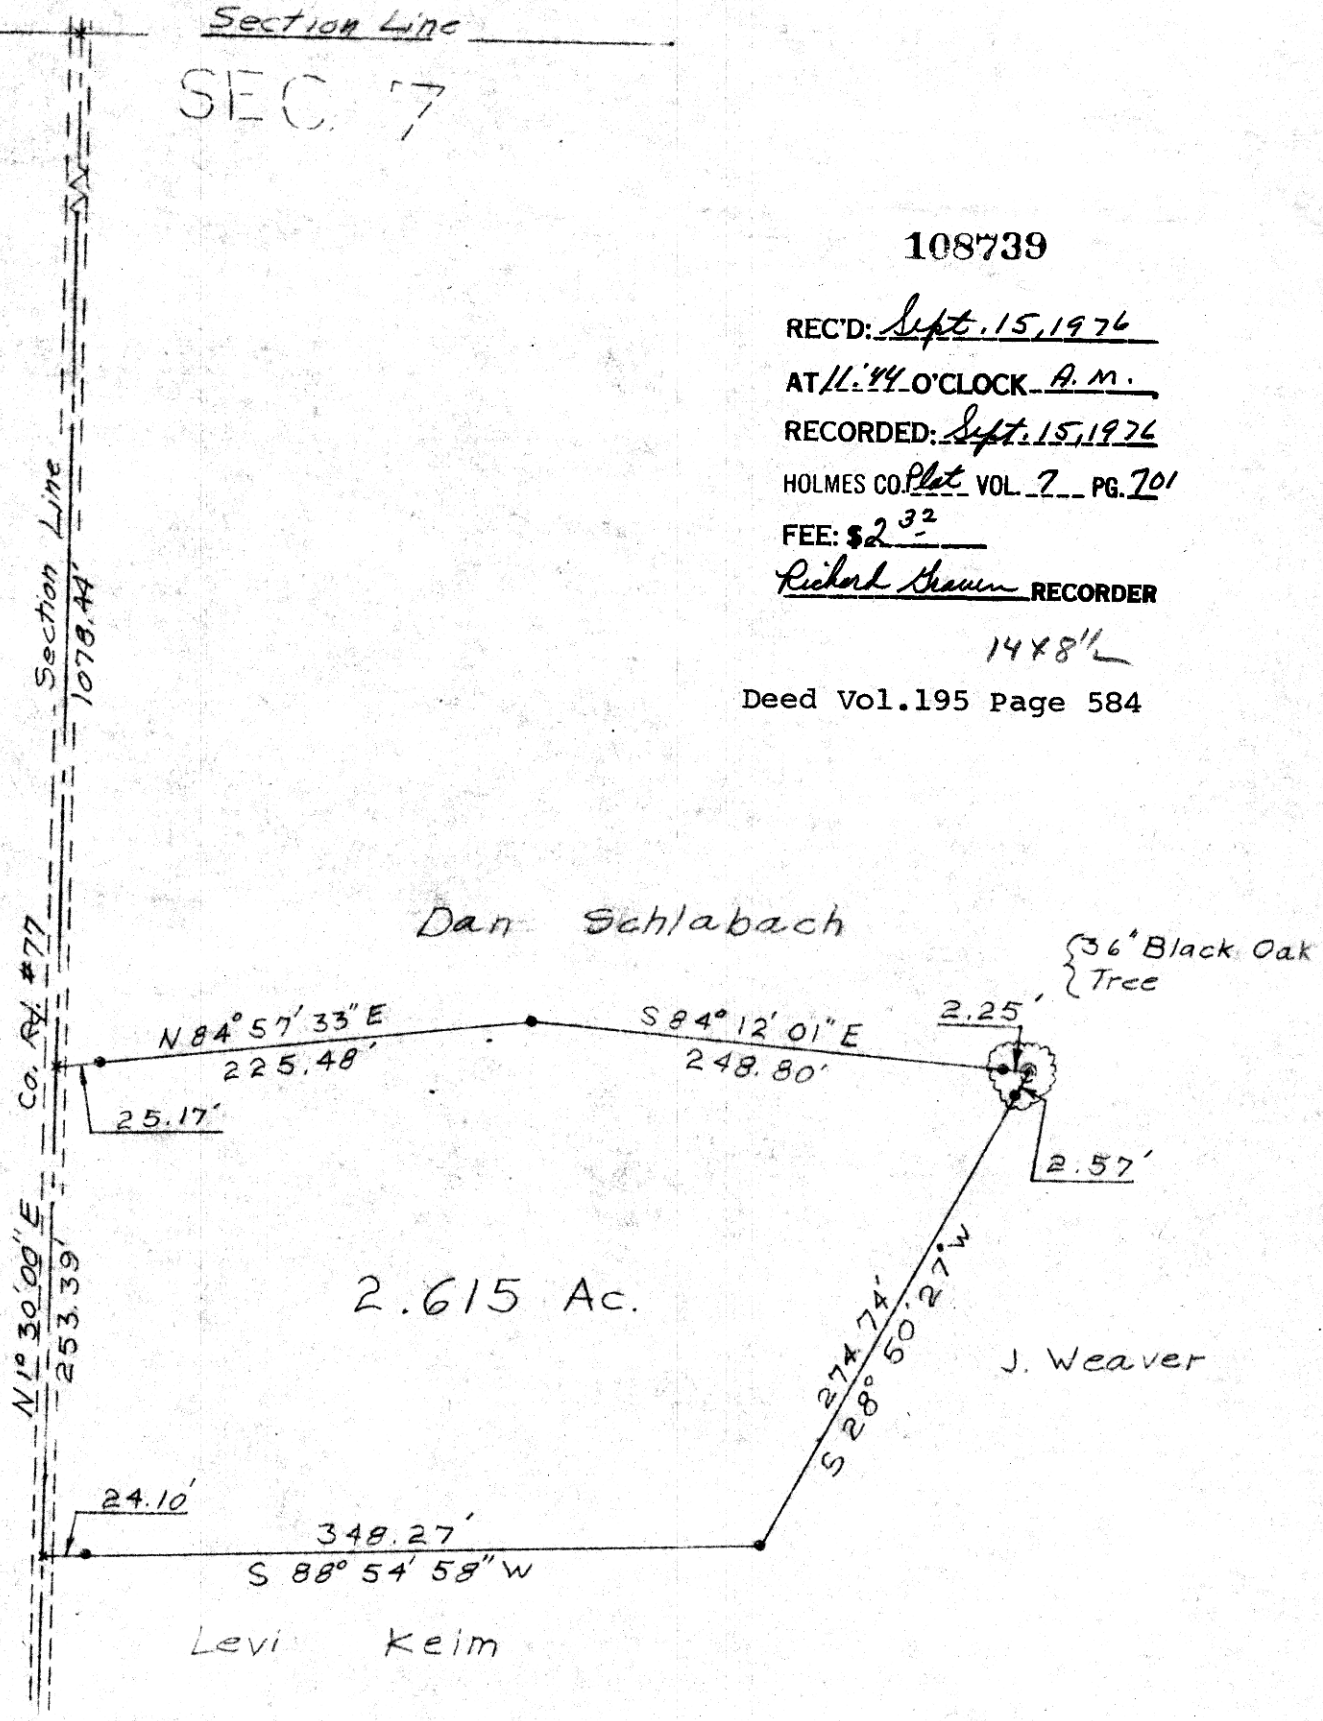 Section Line
SEC. 7
108739
REC'D: Sept. 15, 1976
AT 11:44 O'CLOCK A.M.
RECORDED: Sept. 15, 1976
HOLMES CO. Plat VOL. 7 PG. 701
FEE: $2 32
Richard Graven RECORDER
14 x 8 1/2
Deed Vol.195 Page 584
Section Line
1078.44'
Dan Schlabach
36" Black Oak
Tree
Co. Rd. #77
N 84° 57' 33" E
225.48'
S 84° 12' 01" E
248.80'
2.25'
25.17'
2.57'
N 1° 30' 00" E
253.39'
2.615 Ac.
274.74'
S 28° 50' 27" W
J. Weaver
24.10'
348.27'
S 88° 54' 58" W
Levi Keim